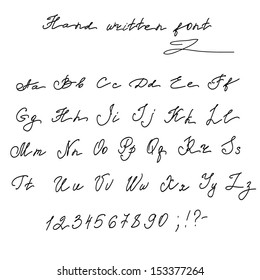 Hand written font
Aa Bb Cc Dd Ee Ff
Gg Hh Ii Jj Kk Ll
Mm Nn Oo Pp Qq Rr Ss
Tt Uu Vv Ww Xx Yy Zz
1234567890;!?-
shutterstock.com · 153377264